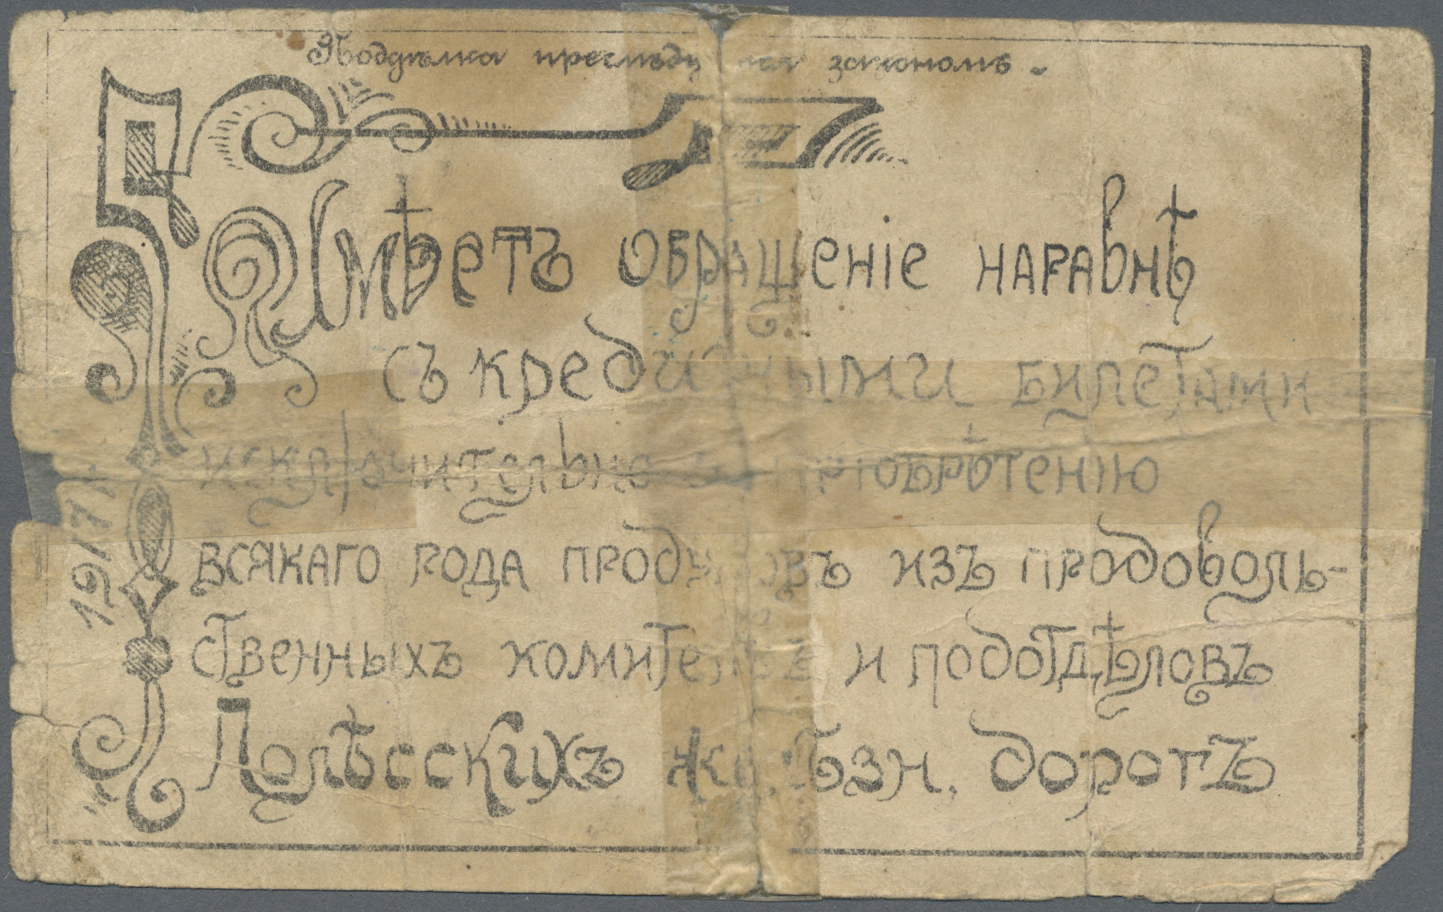 Поддѣлка преслѣду ся закономъ.
Имѣетъ обращеніе наравнѣ
съ кредитными билетами
исключительно пріобрѣтенію
всякаго рода проду овъ изъ продоволь-
ственныхъ комитетовъ и подотдѣловъ
Полѣсскихъ желѣзн. дорогъ
1917 г.